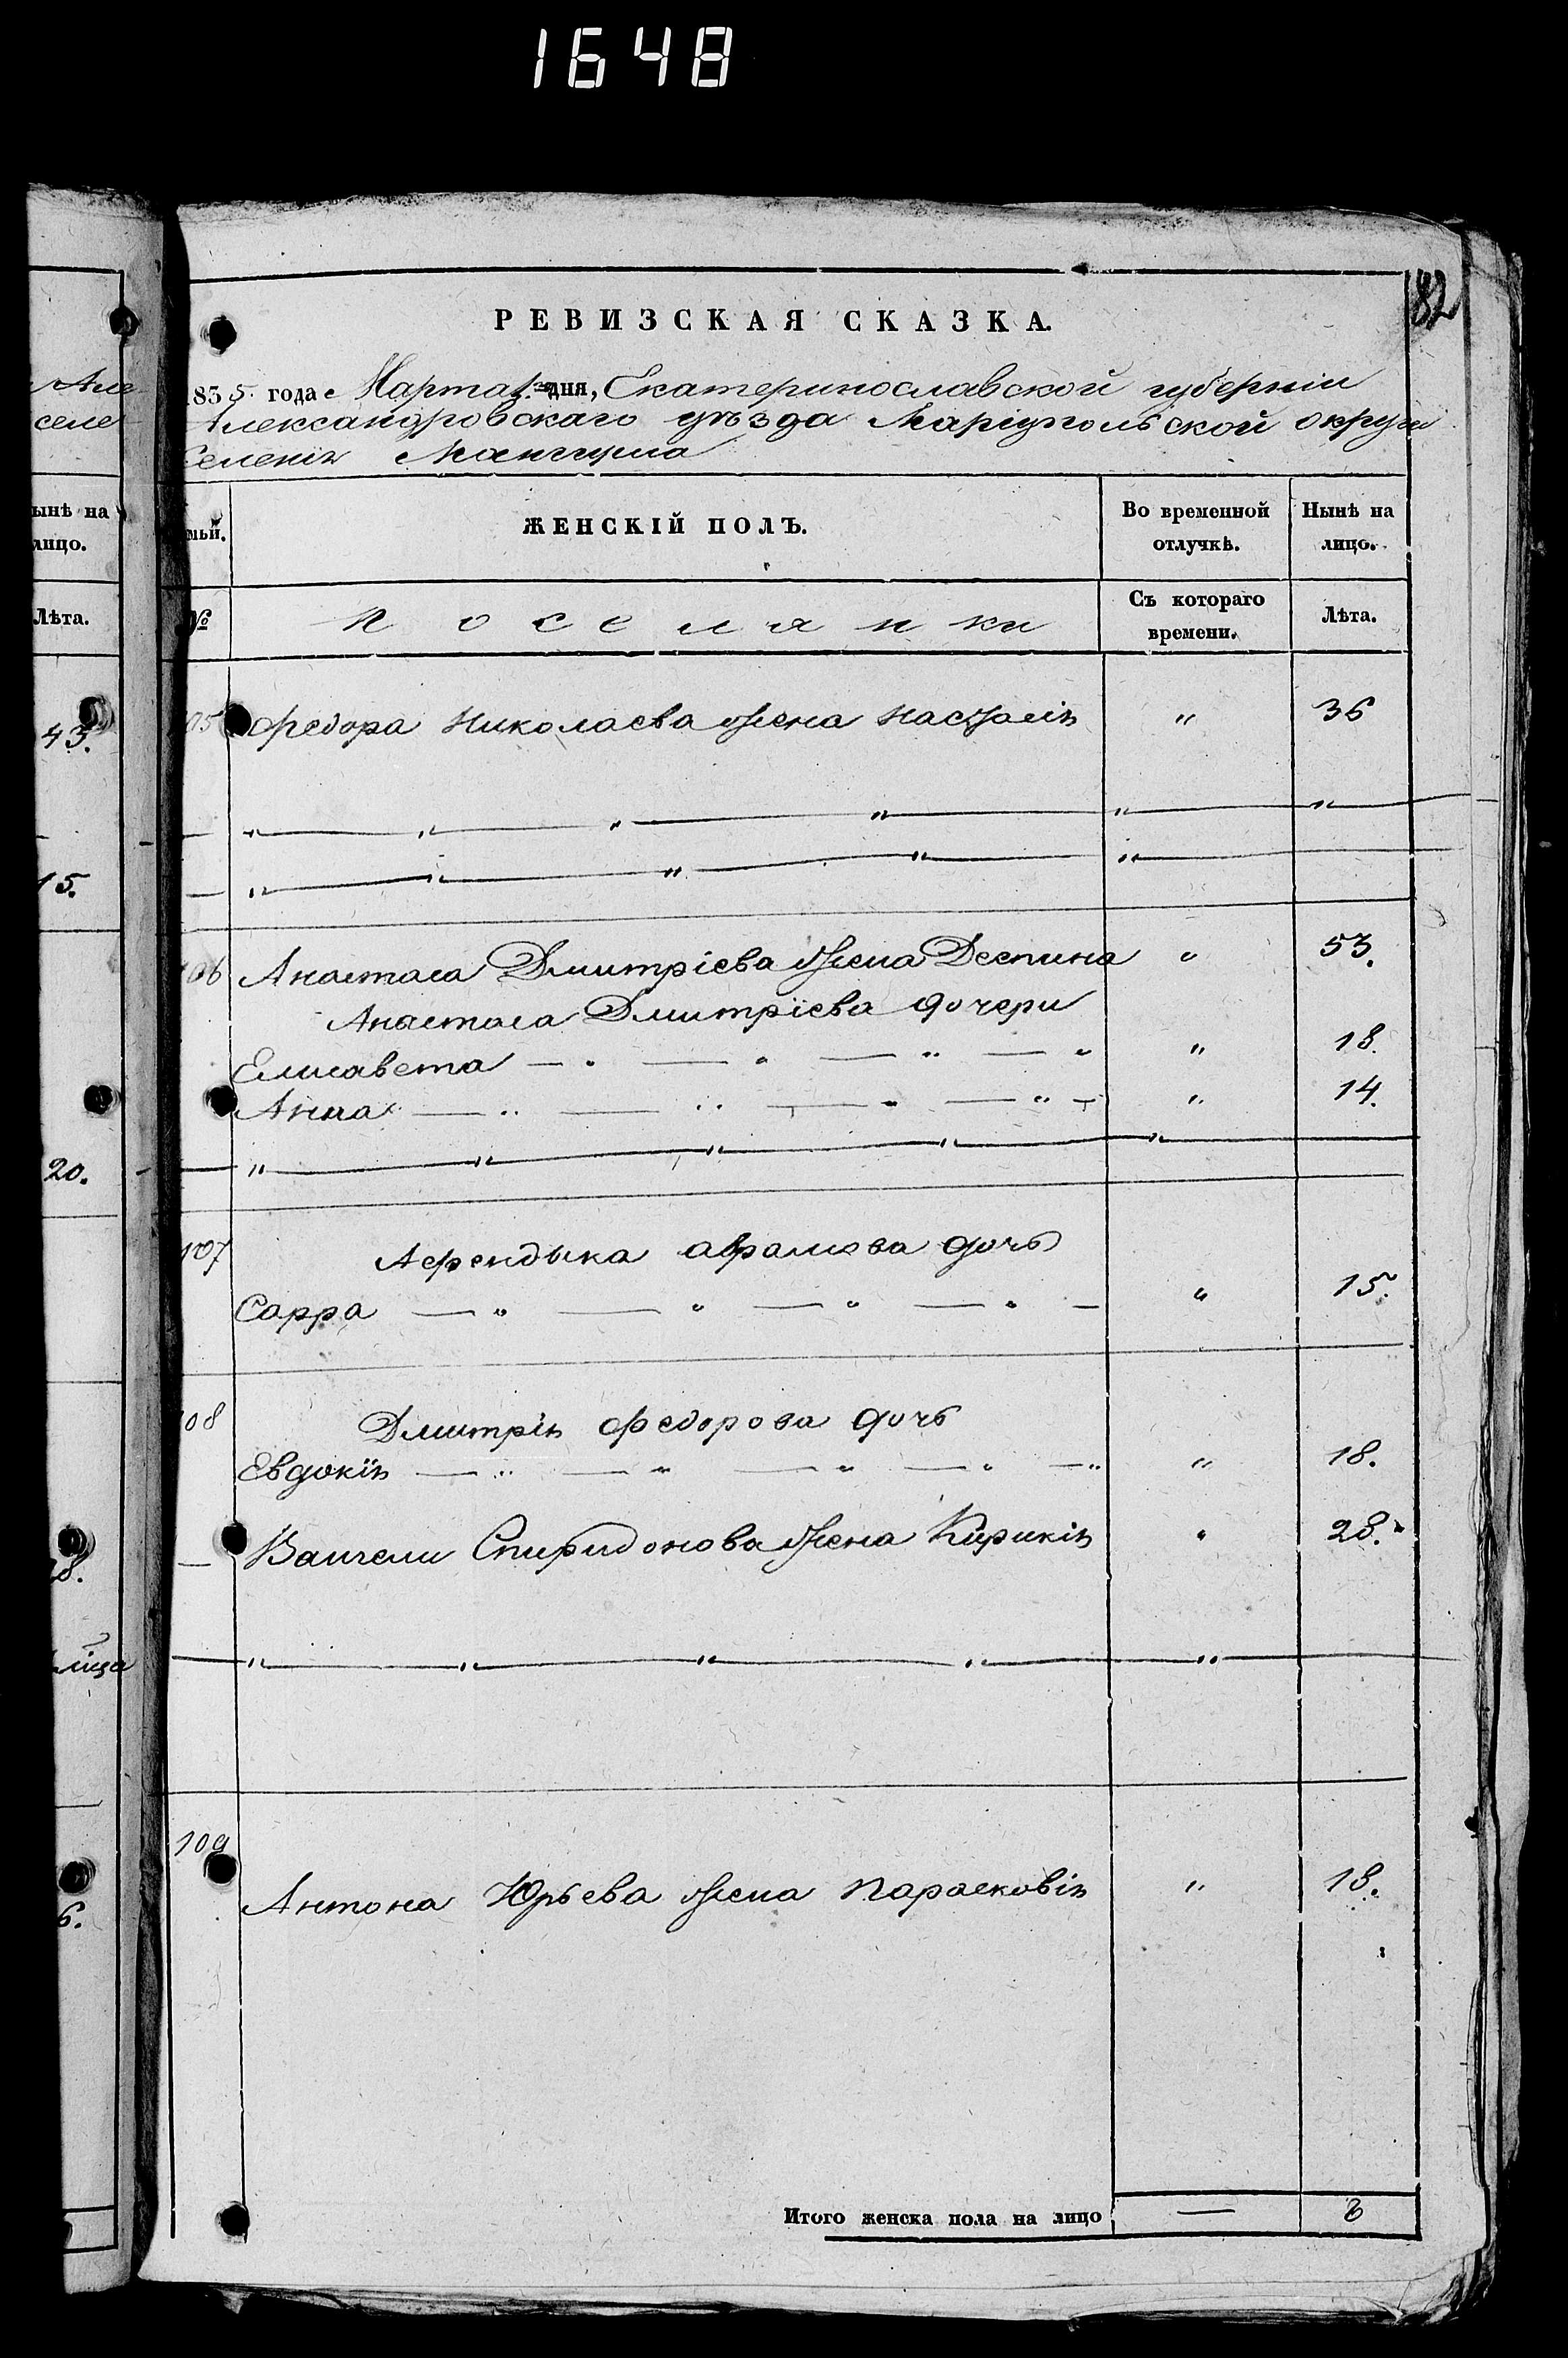 1648
82
РЕВИЗСКАЯ СКАЗКА.
1835 года Марта 1 дня, Екатеринославской губерніи
Александровскаго уѣзда Маріупольской округи
Селенія Мангуша
мьи. ЖЕНСКІЙ ПОЛЪ. Во временной отлучкѣ. Нынѣ на лицо.
№ Поселянки Съ котораго времени. Лѣта.
105 Федора Николаева жена Настасія " 36
" " " " " "
" " " " "
106 Анастаса Дмитріева жена Деспина " 53.
Анастаса Дмитріева дочери
Елисавета — " — " — " — " " 18.
Анна — " — " — " — " — " 14.
" " " " "
107 Афендыка аврамова дочь
Сарра — " — " — " — " — " 15.
108 Дмитрія Федорова дочь
Евдокія — " — " — " — " — " " 18.
— Вангели Спиридонова жена Кирикія " 28.
— " " " " "
109
Антона Юрьева жена Параскевія " 18.
Итого женска пола на лицо — 8
Але
селе
ынѣ на
лицо.
Лѣта.
43.
15.
20.
28.
6.